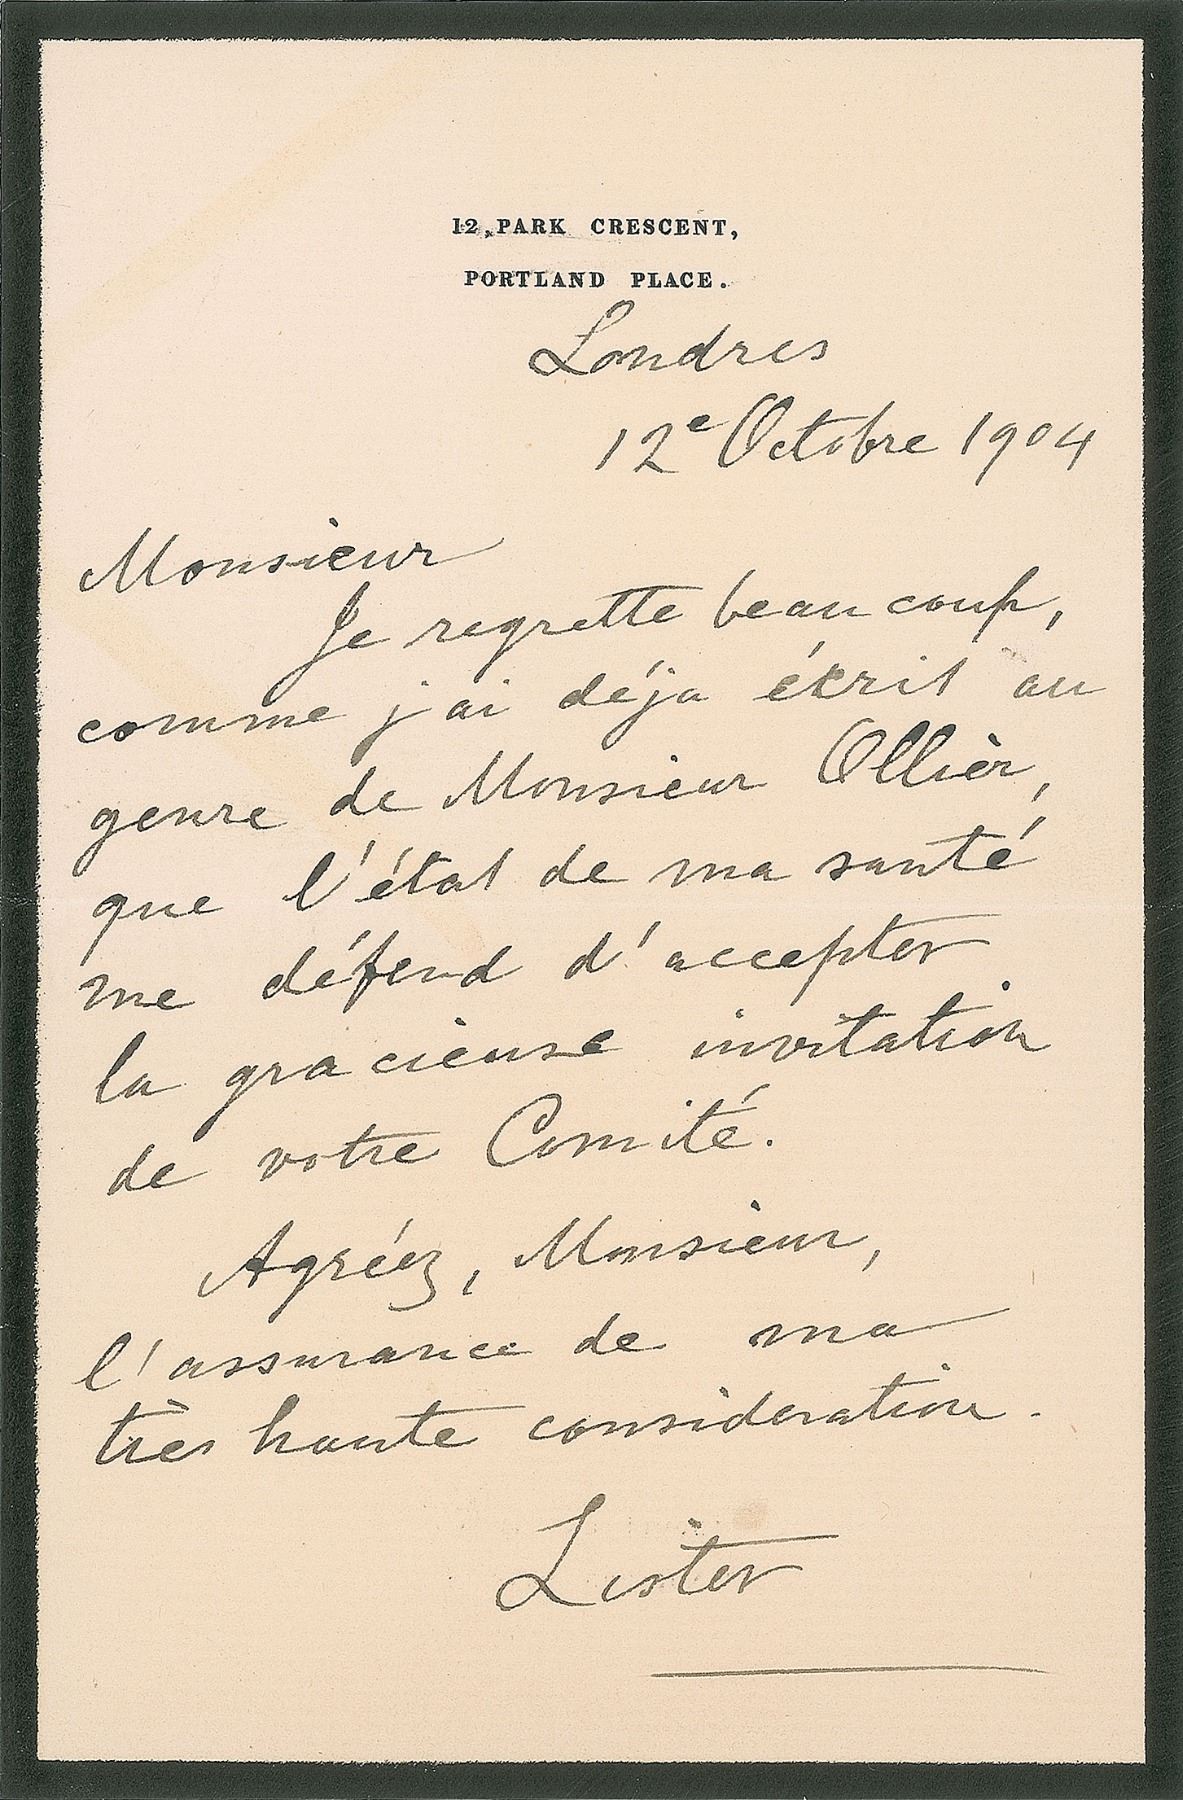 12, PARK CRESCENT,
PORTLAND PLACE.
Londres
12e Octobre 1904
Monsieur
Je regrette beaucoup,
comme j'ai déja écrit au
genre de Monsieur Ollièr,
que l'état de ma santé
me défend d'accepter
la gracieuse invitation
de votre Comité.
Agréez, Monsieur,
l'assurance de ma
très haute consideration.
Lister